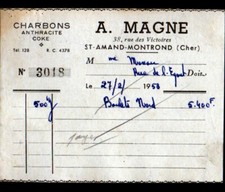 CHARBONS
ANTHRACITE
COKE
Tél. 128 R. C. 4376
A. MAGNE
38, rue des Victoires
ST-AMAND-MONTROND (Cher)
N° 3018
M me
Rue de l'Egout Doit
Le 27/2/ 1953
500 k Boulets Nord 5.400F
payé